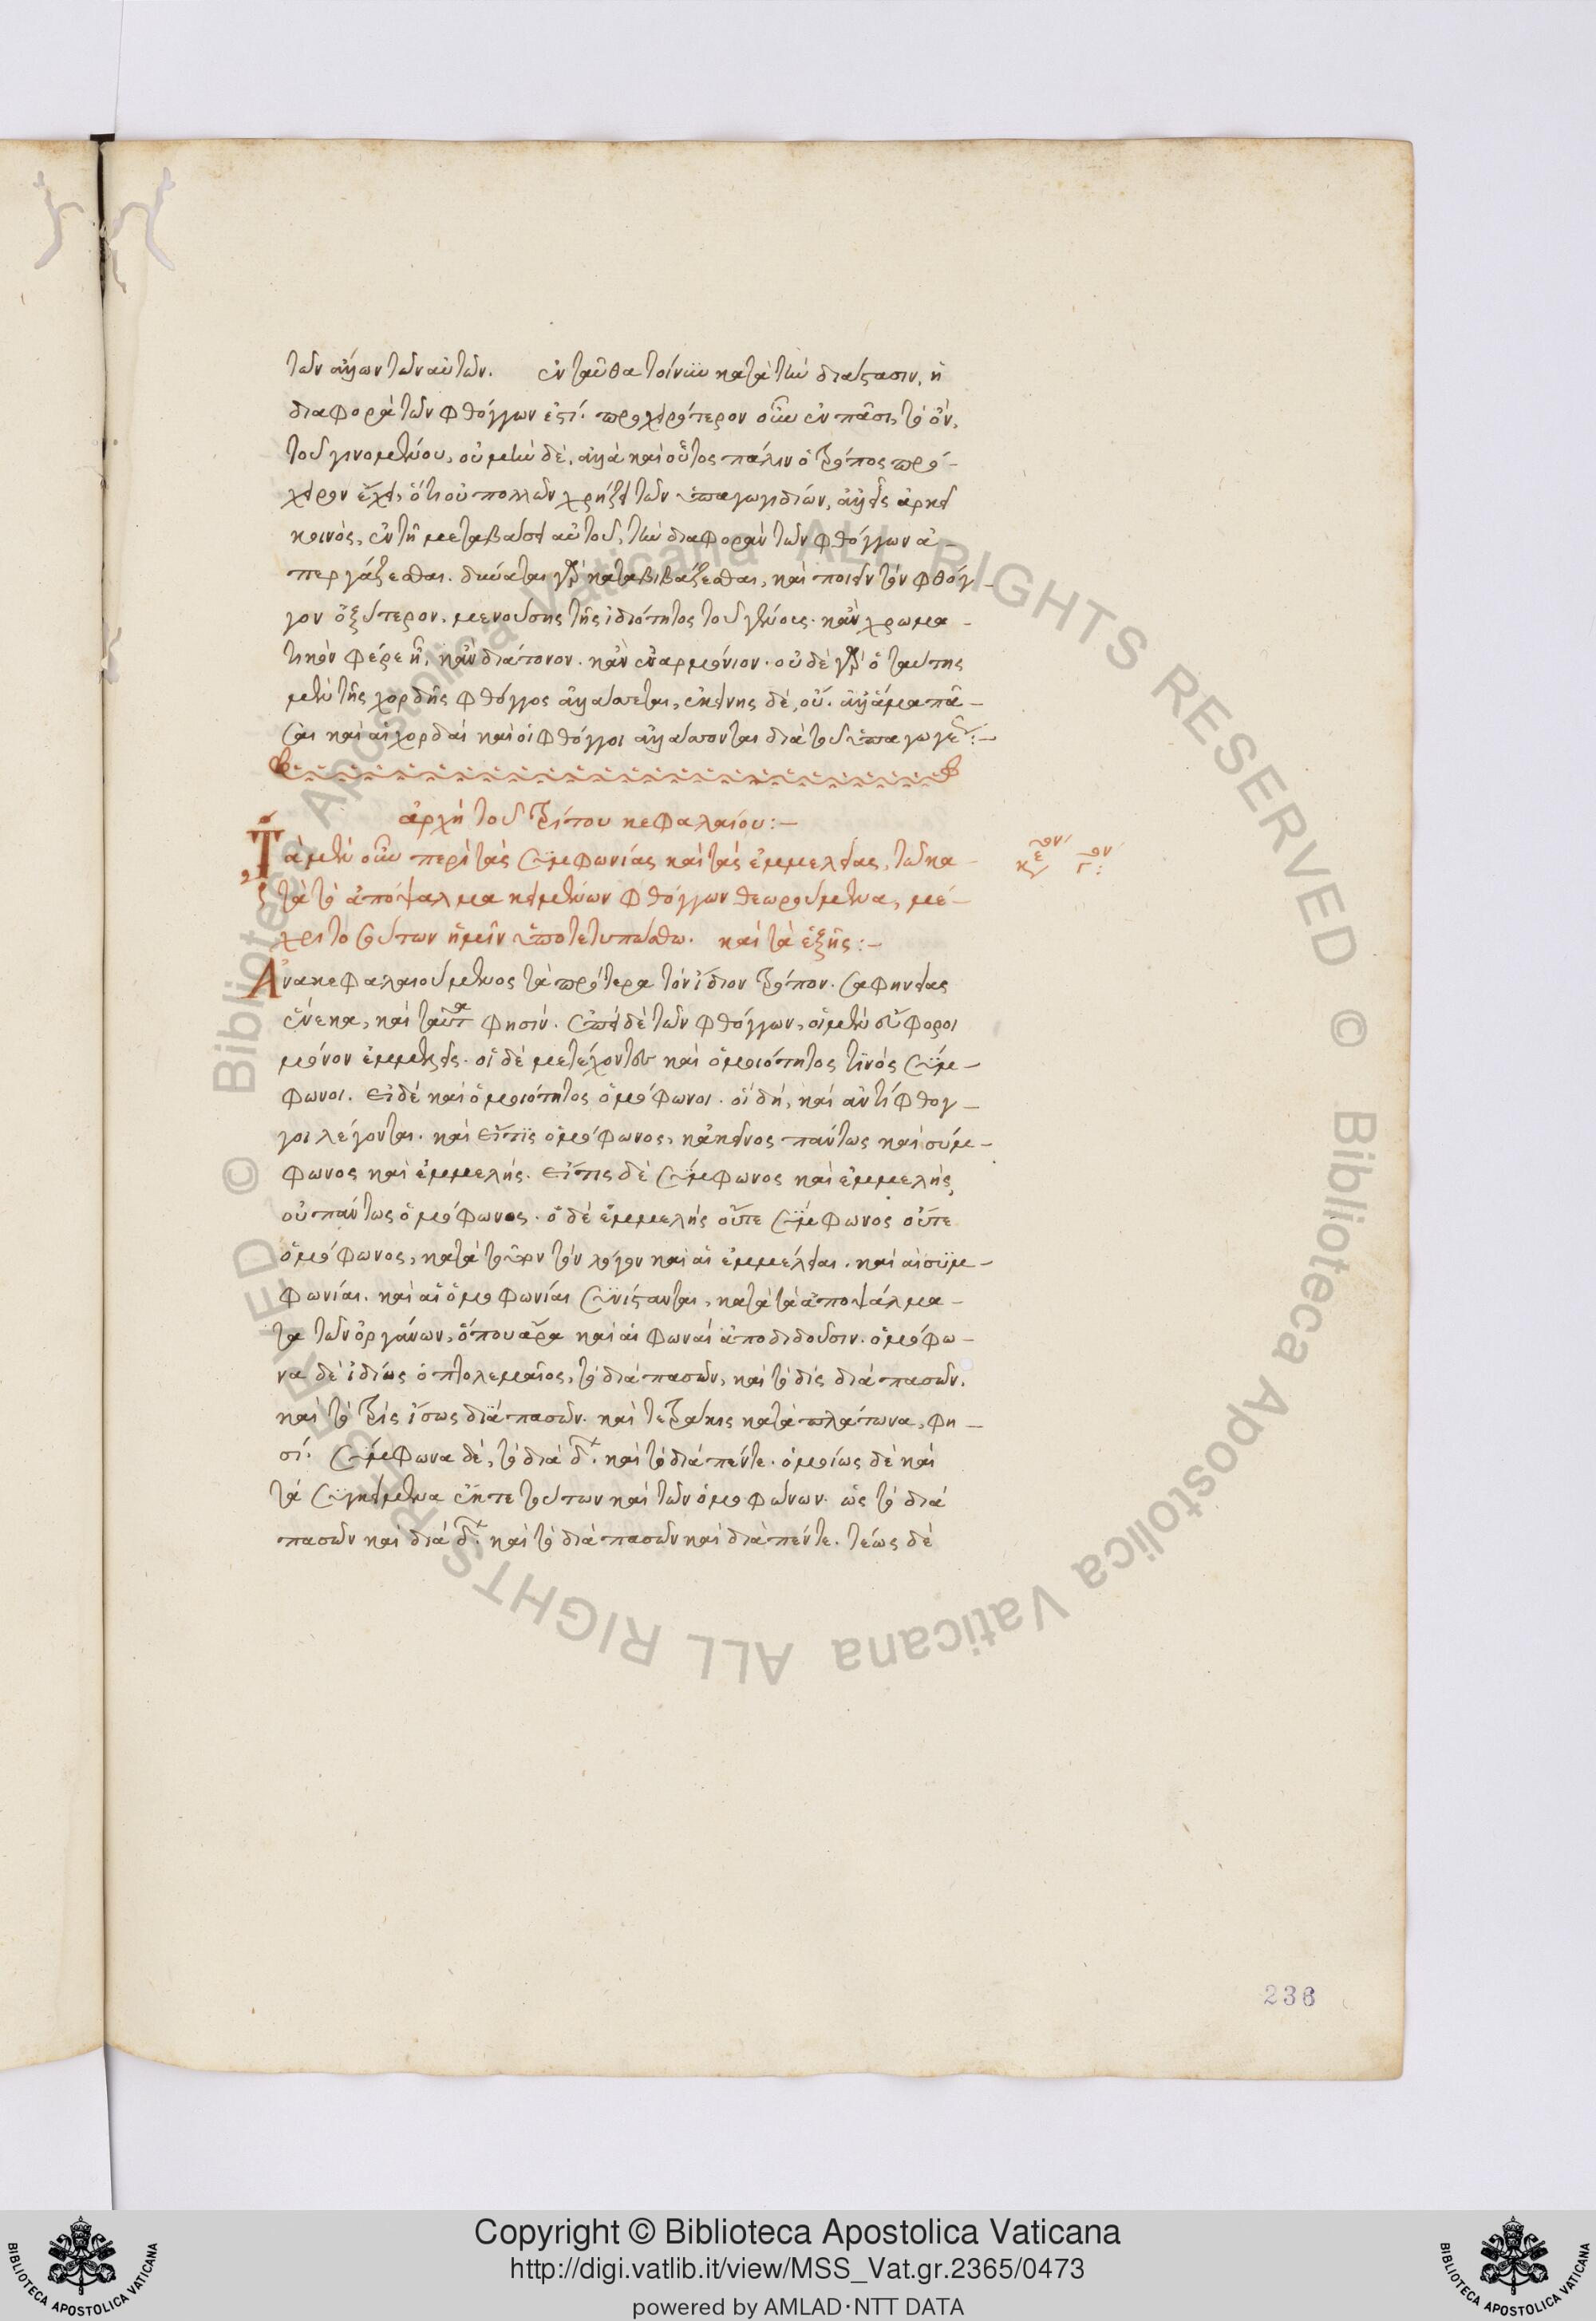 τῶν ἄλλων τῶν αὐτῶν. ἐνταῦθα τοίνυν κατὰ τὴν διάστασιν, ἡ
διαφορὰ τῶν φθόγγων ἐστί. προχειρότερον οὖν ἐν πᾶσι, τὸ ὂν,
τοῦ γινομένου, οὐ μὴν δὲ, ἀλλὰ καὶ οὗτος πάλιν ὁ τρόπος πρό-
χειρον ἔχει, ὅτι οὐ πολλῶν χρήζει τῶν ὑπαγωγιδίων, ἀλλ' εἷς ἀρκεῖ
κοινὸς, ἐν τῇ μεταβάσει αὐτοῦ, τὴν διαφορὰν τῶν φθόγγων ἀ-
περγάζεσθαι. δύναται γὰρ καταβιβάζεσθαι, καὶ ποιεῖν τὸν φθόγ-
γον ὀξύτερον, μενούσης τῆς ἰδιότητος τοῦ γένους. κἂν χρωμα-
τικὸν φέρε ᾖ, κἂν διάτονον. κἂν ἐναρμόνιον. οὐδὲ γὰρ ὁ ταύτης
μὲν τῆς χορδῆς φθόγγος ἀλλάττεται, ἐκείνης δὲ, οὔ. ἀλλ' ἅμα πᾶ-
σαι καὶ αἱ χορδαὶ καὶ οἱ φθόγγοι ἀλλάττονται διὰ τοῦ ὑπαγωγέως:-
ἀρχὴ τοῦ τρίτου κεφαλαίου:-
Τὰ μὲν οὖν περὶ τὰς συμφωνίας καὶ τὰς ἐμμελείας, τῶν κα-
τὰ τὸ ἀπόψαλμα κειμένων φθόγγων θεωρούμενα, μέ-
χρι τοσούτων ἡμῖν ὑποτετυπώσθω. καὶ τὰ ἑξῆς:-
Ἀνακεφαλαιούμενος τὰ πρότερα τὸν ἴδιον τρόπον. σαφηνείας
ἕνεκα, καὶ ταῦτα φησίν. ἐπεὶ δὲ τῶν φθόγγων, οἱ μὲν σύμφοροι
μόνον ἐμμελεῖς. οἱ δὲ μετέχοντες καὶ ὁμοιότητος τινὸς σύμ-
φωνοι. εἰ δὲ καὶ ὁμοιότητος ὁμόφωνοι. οἳ δὴ, καὶ ἀντίφθογ-
γοι λέγονται. καὶ εἴ τις ὁμόφωνος, κἀκεῖνος πάντως καὶ σύμ-
φωνος καὶ ἐμμελής. εἴ τις δὲ σύμφωνος καὶ ἐμμελής,
οὐ πάντως ὁμόφωνος. ὁ δὲ ἐμμελὴς οὔτε σύμφωνος οὔτε
ὁμόφωνος, κατὰ τοῦτον τὸν λόγον καὶ αἱ ἐμμέλειαι. καὶ αἱ συμ-
φωνίαι. καὶ αἱ ὁμοφωνίαι συνίστανται, κατὰ τὰ ἀποψάλμα-
τα τῶν ὀργάνων, ὅπου ἄρα καὶ αἱ φωναὶ ἀποδιδοῦσιν. ὁμόφω-
να δὲ ἰδίως ὁ πτολεμαῖος, τὸ διὰ πασῶν, καὶ τὸ δὶς διὰ πασῶν.
καὶ τὸ τρὶς ἴσως διὰ πασῶν. καὶ τετράκις κατὰ πλάτωνα, φη-
σί. σύμφωνα δὲ, τὸ διὰ δ. καὶ τὸ διὰ πέντε. ὁμοίως δὲ καὶ
τὰ συγκείμενα ἔκ τε τούτων καὶ τῶν ὁμοφώνων. ὡς τὸ διὰ
πασῶν καὶ διὰ δ. καὶ τὸ διὰ πασῶν καὶ διὰ πέντε. τέως δὲ
236
© Biblioteca Apostolica Vaticana ALL RIGHTS RESERVED © Biblioteca Apostolica Vaticana ALL RIGHTS RESERVED
Copyright © Biblioteca Apostolica Vaticana
http://digi.vatlib.it/view/MSS_Vat.gr.2365/0473
powered by AMLAD·NTT DATA
BIBLIOTECA APOSTOLICA VATICANA
BIBLIOTECA APOSTOLICA VATICANA